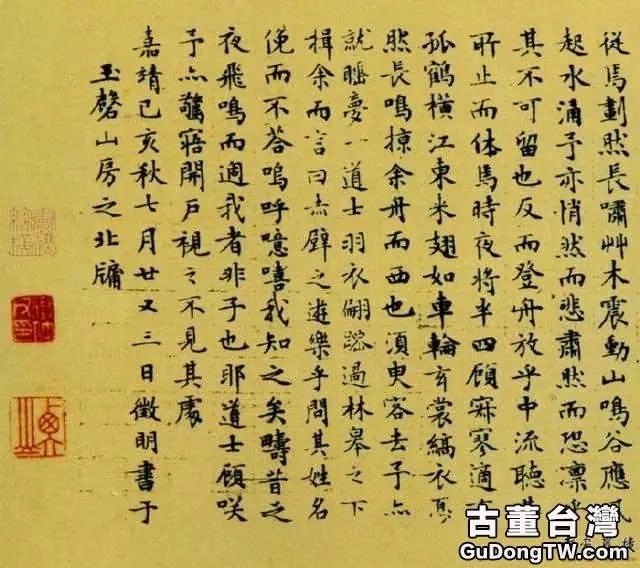 從焉劃然長嘯艸木震動山鳴谷應風
起水涌予亦悄然而悲肅然而恐凛乎
其不可留也反而登舟放乎中流聽其
所止而休焉時夜將半四顧寂寥適有
孤鶴橫江東來翅如車輪玄裳縞衣戛
然長鳴掠余舟而西也須臾客去予亦
就睡夢一道士羽衣翩躚過林皋之下
揖余而言曰赤壁之遊樂乎問其姓名
俛而不答嗚呼噫嘻我知之矣疇昔之
夜飛鳴而過我者非子也耶道士顧笑
予亦驚寤開戶視之不見其處
嘉靖己亥秋七月廿又三日徵明書于
玉磬山房之北牖
古董台灣
GuDongTW.com